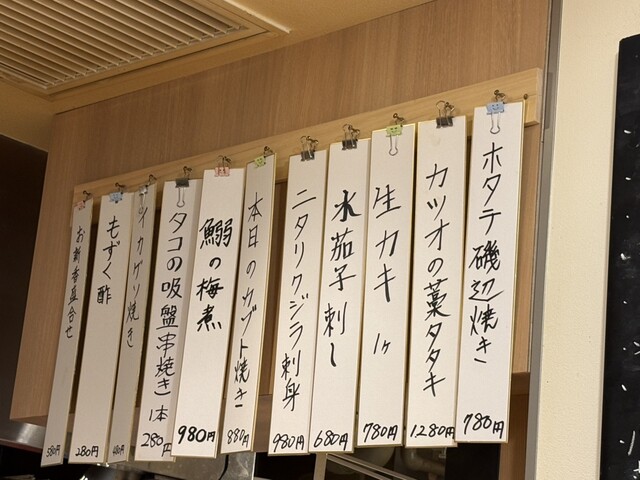 ホタテ磯辺焼き
780円
カツオの藁タタキ
1280円
生カキ 1ヶ
780円
水茄子刺し
680円
ニタリクジラ刺身
980円
本日のカブト焼き
880円
鰯の梅煮
980円
タコの吸盤串焼き 1本
280円
イカゲソ焼き
480円
もずく酢
280円
お新香盛合せ
580円